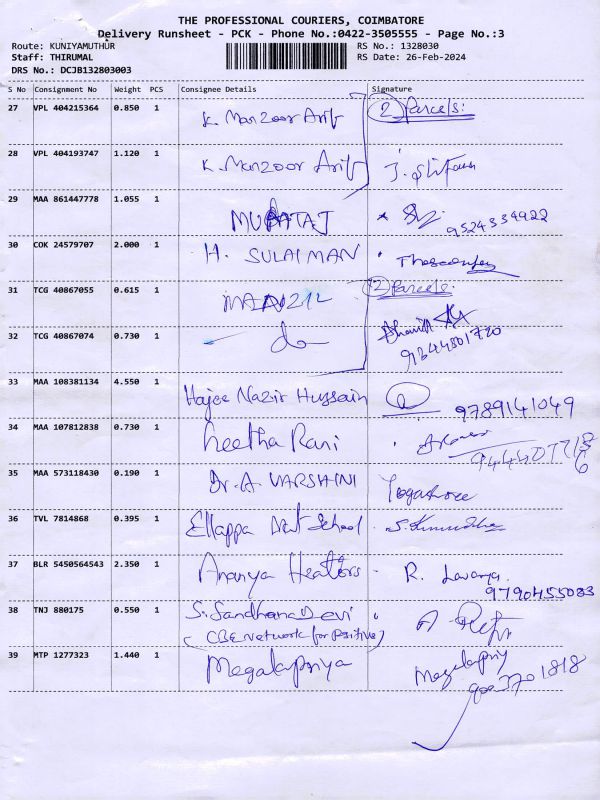 THE PROFESSIONAL COURIERS, COIMBATORE
Delivery Runsheet - PCK - Phone No.:0422-3505555 - Page No.:3
Route: KUNIYAMUTHUR RS No.: 1328030
Staff: THIRUMAL RS Date: 26-Feb-2024
DRS No.: DCJB132803003
S No Consignment No Weight PCS Consignee Details Signature
27 VPL 404215364 0.850 1 K. Manzoor Arif 2 Parcels:
28 VPL 404193747 1.120 1 K. Manzoor Arif
29 MAA 861447778 1.055 1 9524334922
30 COK 24579707 2.000 1 H. SULAIMAN
31 TCG 40867055 0.615 1 2 Parcels:
32 TCG 40867074 0.730 1 do 9344801720
33 MAA 108381134 4.550 1 Hajee Nazir Hussain 9789141049
34 MAA 107812838 0.730 1 Geetha Rani
35 MAA 573118430 0.190 1 Dr. A. VARSHINI
36 TVL 7814868 0.395 1 Ellappa School
37 BLR 5450564543 2.350 1 Ananya Heaters R. Lavanya
9790455083
38 TNJ 880175 0.550 1 S. Sandhana Devi
(CBE Network for Positive)
39 MTP 1277323 1.440 1 Megalapriya Megalapriy